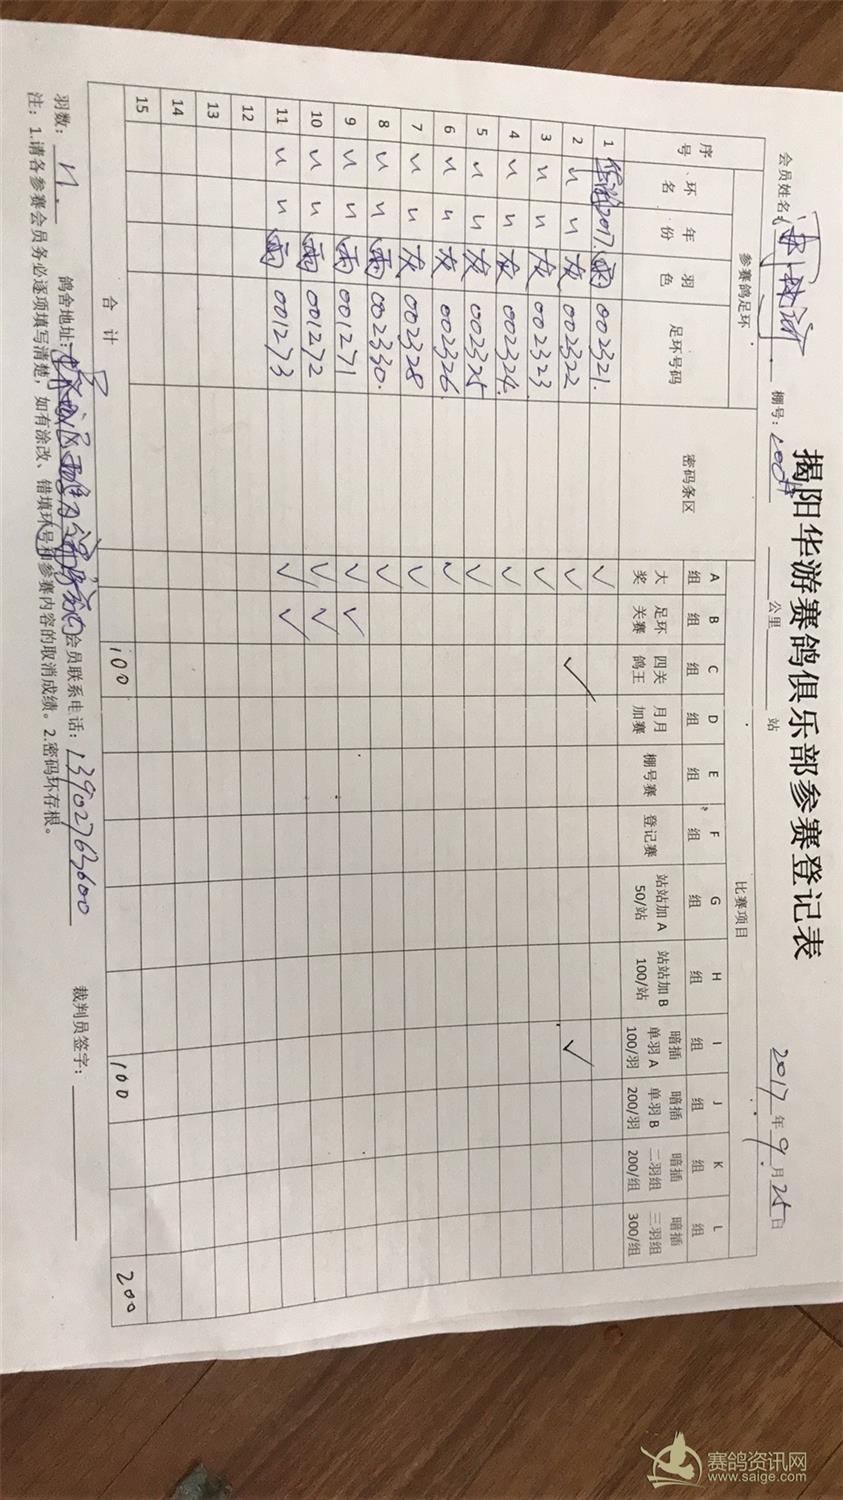 揭阳华游赛鸽俱乐部参赛登记表
会员姓名: 棚号: 公里 站 2017年9月25日
参赛鸽足环 比赛项目
序号 环名 年份 羽色 足环号码 密码条区 A组 B组 C组 D组 E组 F组 G组 H组 I组 J组 K组 L组
大奖 足环关赛 四关鸽王 月月加赛 棚号赛 登记赛 站站加A 50/站 站站加B 100/站 暗插单羽A 100/羽 暗插单羽B 200/羽 暗插二羽组 200/组 暗插三羽组 300/组
1 华游 2017. 雨 002321. ✓
2 〃 〃 灰 002322 ✓ ✓ ✓
3 〃 〃 灰 002323 ✓
4 〃 〃 灰 002324. ✓
5 〃 〃 灰 002325 ✓
6 〃 〃 灰 002326. ✓
7 〃 〃 灰 002328 ✓
8 〃 〃 雨 002330. ✓
9 〃 〃 雨 001271 ✓ ✓
10 〃 〃 雨 001272 ✓ ✓
11 〃 〃 雨 001273 ✓ ✓
12
13
14
15
合计 100 100 200
羽数: 11. 鸽舍地址: 会员联系电话: 13902763600 裁判员签字:
注: 1.请各参赛会员务必逐项填写清楚, 如有涂改、错填环号和参赛内容的取消成绩。2.密码环存根。
赛鸽资讯网
www.saige.com